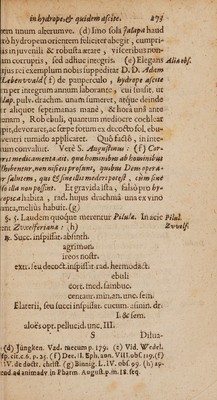 in hydrope, & quidem ascite. 273
rem unum alterumve. (d) Imo sola Jalapa haud
rò hydropem orientem feliciter abegit, cumpri-
is in juvenili & robusta ætate, visceribus non-
m corruptis, sed adhuc integris. (e) Elegans Alia obs.
jus rei exemplum nobis suppeditat D. D. Adam
Lebenwald (f) de panperculo, hydrope ascite
er per integrum annum laborante, cui suasit, ut
lap. pulv. drachm. unam sumeret, néque deinde
er aliquot septimanas manè, & hora unâ ante
um, Rob ebuli, quantum mediocre cochlear
pit, devoraret, ac sæpe fotum ex decocto fol. ebu-
ventri tumido applicaret. Quô factô, in inte-
um convaluit. Verè S. Augustinus: (f) Cor-
ris medicamenta ait. quæ hominibus ab hominibus
hibentur, non nisi eis prosunt, quibus Deus opera-
r salutem, qui & sine illis mederi potest, cùm sine
so illa non possint. Et gravida ista, salvô pro hy-
opica habita, rad. hujus drachmâ una ex vino
anita, melius habuit. (g)
§. 5. Laudem quoque merentur Pilulæ. In acie Pilul.
ant Zvvelferianæ: (h) Zvvelf.
℞. Succ. inspissat. absinth.
agrimon.
ireos nostr.
extr. seu decoct. inspissat. rad. hermodact.
ebuli
cort. med. sambuc.
centaur. min. an. unc. sem.
Elaterii, seu succi inspissat. cucum. asinin. dr.
I. & sem.
aloës opt. pellucid. unc. III.
S Dilua-
(d) Jüngken. Vad. mecum p. 179. (e) Vid. Wedel.
(f) Dec. II. Eph. ann. VIII. obs. 119. (f)
IV. de doctr. christ. (g) Binnig. L. IV. obs. 99. (h) ap-
end ad animadv. in Pharm. August. p. m. 18. seq.